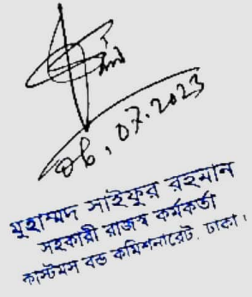 ০৮, ০7.2023
মুহাম্মদ সাইফুর রহমান
সহকারী রাজস্ব কর্মকর্তা
কাস্টমস বন্ড কমিশনারেট, ঢাকা।